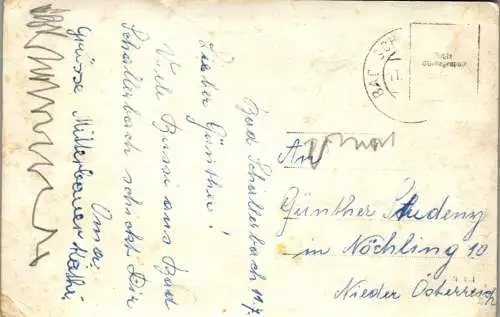 Bad Schallerbach 11.7.
Lieber Günther!
Viele Bussi aus Bad
Schallerbach schickt Dir
Oma.
Grüsse Mitterbauer Kathi
BAD SCH
An
Günther Studeny
in Nöchling 10
Nieder Österreich